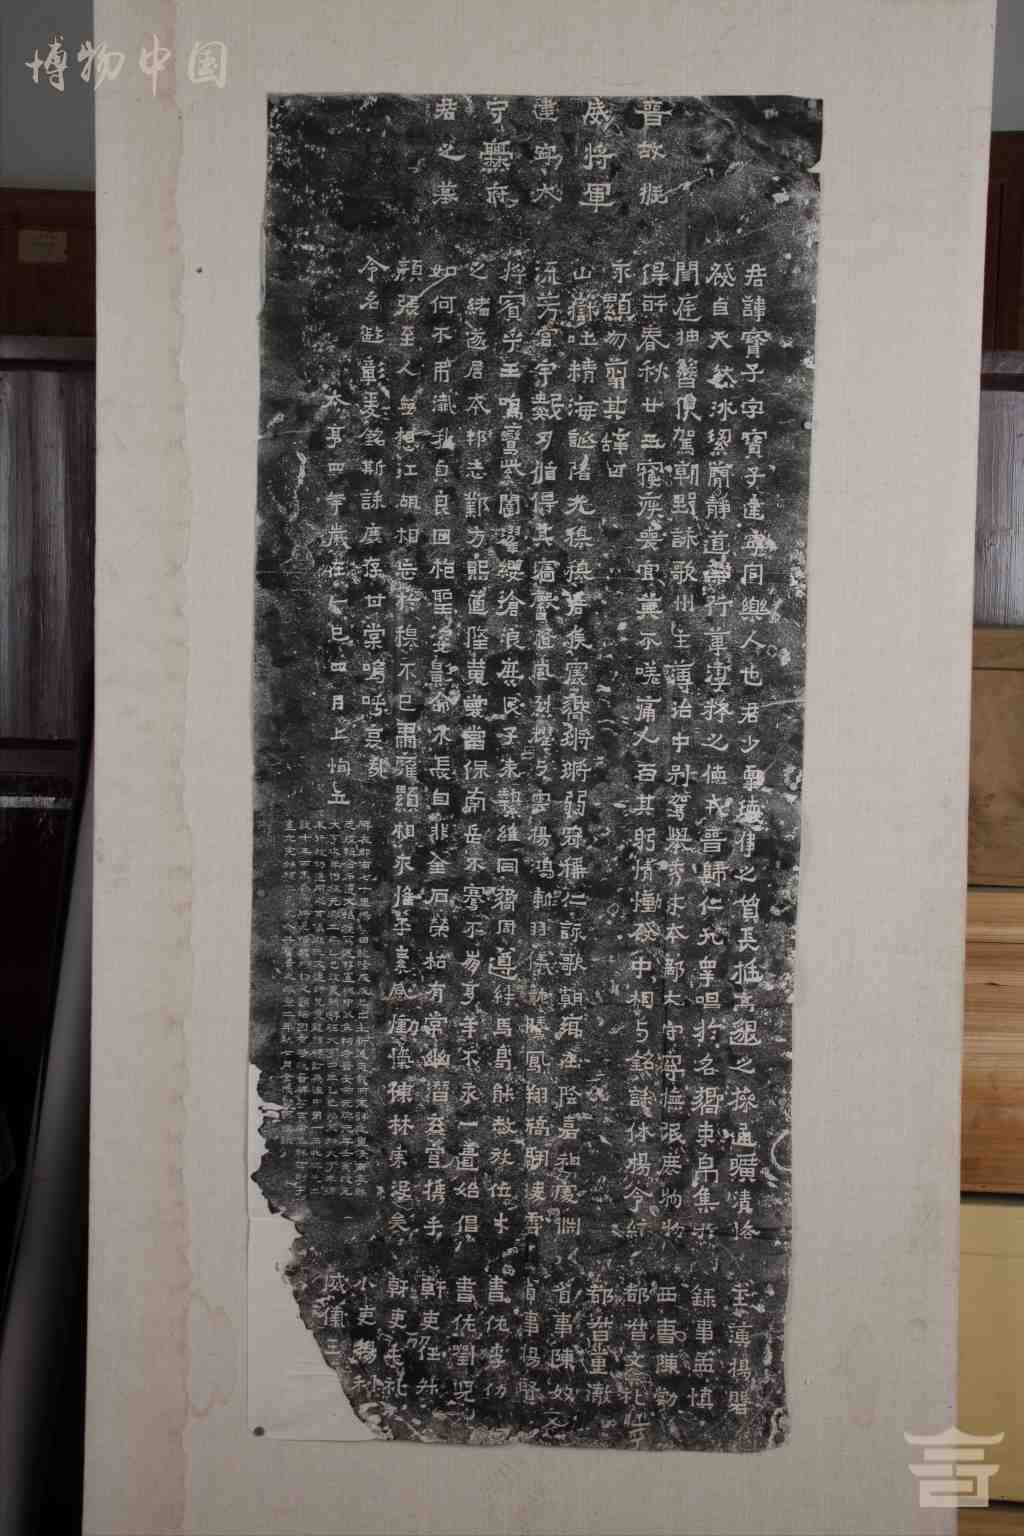 晉故振
威將軍
建寧太
守爨府
君之墓
君諱寶子字寶子建寧同樂人也君少稟瓌偉之質長挺高邈之操通曠清恪
發自天然冰絜簡靜道兼行葦淳粹之德戎晉歸仁九皋唱於名嚮束帛集於
閨庭抽簪俟駕朝野詠歌州主簿治中別駕舉秀才本郡太守寧撫氓庶物物
得所春秋廿三寢疾喪官莫不嗟痛人百其躬情慟發中相與銘誄休揚令終
永顯勿翦其辭曰
山嶽吐精海誕陼光穆穆君侯震嚮鏘鏘弱冠稱仁詠歌朝鄉在陰嘉和處淵
流芳宮宇數仞循得其牆馨隨風烈耀與雲揚鴻漸羽儀龍騰鳳翔矯翮凌霄
將賓乎王鳴鸞紫闥濯纓滄浪庶民子來縶維同嚮周遵絆馬曷能赦放位才
之緒遂居本邦志鄴方熙道隆黃裳當保南岳不騫不崩享年不永一匱始倡
如何不弔殲我貞良回抱聖姿影命不長自非金石榮枯有常幽潛玄穹攜手
顏張至人無想江湖相忘於穆不已肅雍顯相永惟平素感慟愾慷林宗沒矣
令名遐彰爰銘斯誄庶存甘棠嗚呼哀哉
大亨四年歲在乙巳四月上恂立
主簿楊磐
錄事孟慎
西曹陳勃
都督文禮
都督董徹
省事陳奴
省事楊賢
書佐李仂
書佐劉兒
幹吏任升
幹吏毛礼
小吏楊利
威儀王
博物中国